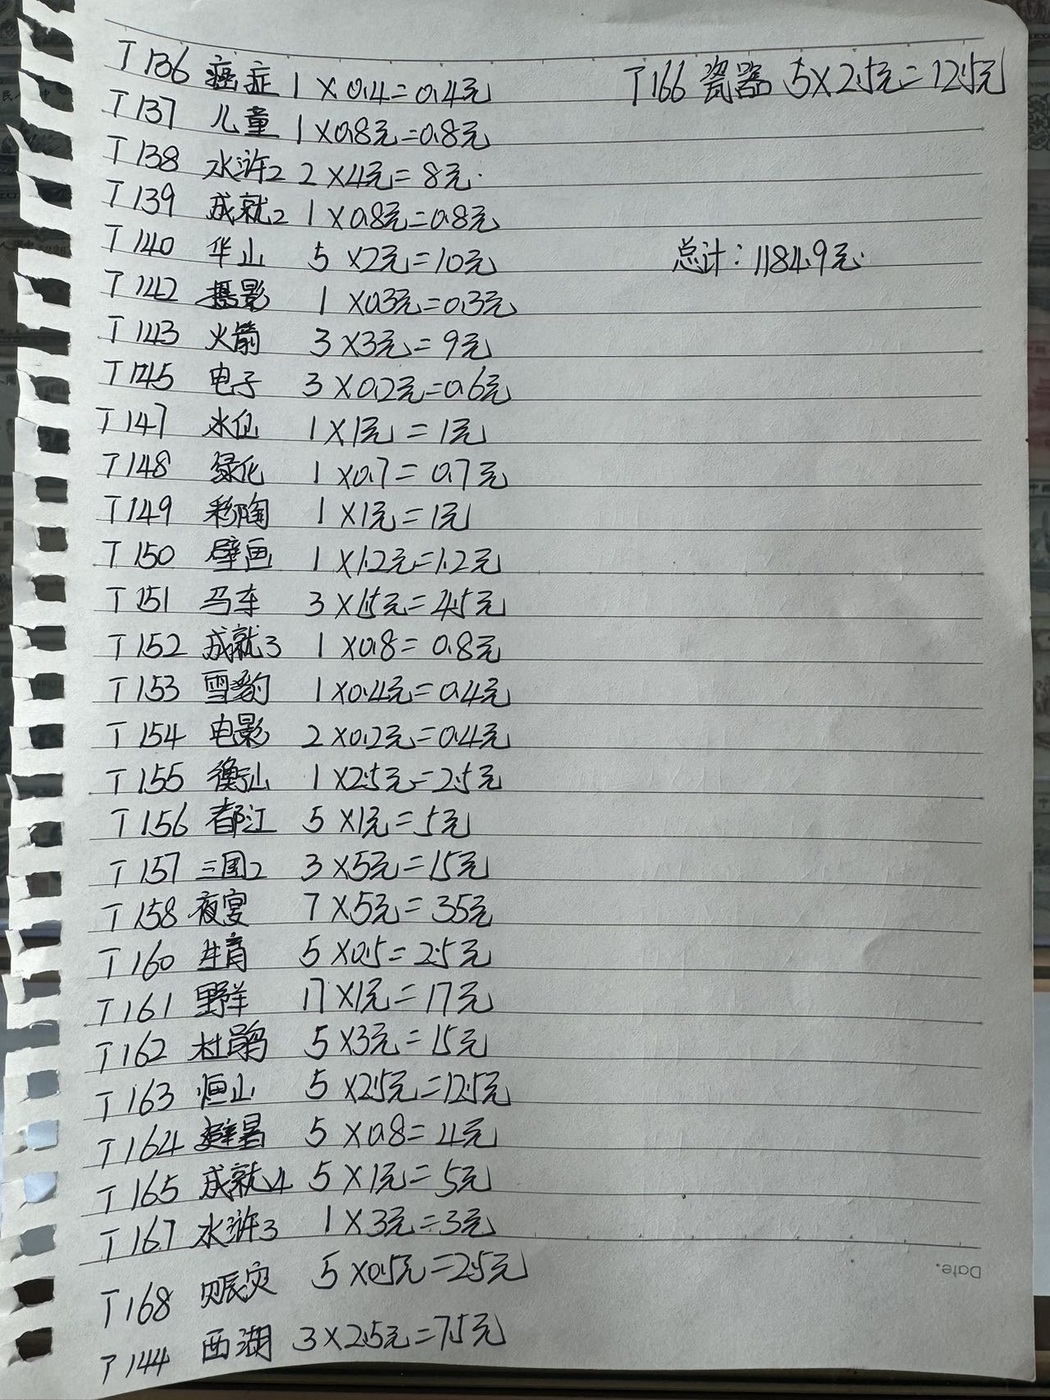 T136 癌症 1×0.4=0.4元
T137 儿童 1×0.8元=0.8元
T138 水浒2 2×4元=8元
T139 成就2 1×0.8元=0.8元
T140 华山 5×2元=10元
T142 摄影 1×0.3元=0.3元
T143 火箭 3×3元=9元
T145 电子 3×0.2元=0.6元
T147 水仙 1×1元=1元
T148 绿化 1×0.7=0.7元
T149 彩陶 1×1元=1元
T150 壁画 1×1.2元=1.2元
T151 马车 3×1.5元=4.5元
T152 成就3 1×0.8=0.8元
T153 雪豹 1×0.4元=0.4元
T154 电影 2×0.2元=0.4元
T155 衡山 1×2.5元=2.5元
T156 都江 5×1元=5元
T157 三国2 3×5元=15元
T158 夜宴 7×5元=35元
T160 生育 5×0.5=2.5元
T161 野羊 17×1元=17元
T162 杜鹃 5×3元=15元
T163 恒山 5×2.5元=12.5元
T164 避暑 5×0.8=4元
T165 成就4 5×1元=5元
T167 水浒3 1×3元=3元
T168 赈灾 5×0.5元=2.5元
T144 西湖 3×2.5元=7.5元
T166 瓷器 5×2.5元=12.5元
总计：1184.9元
Date.